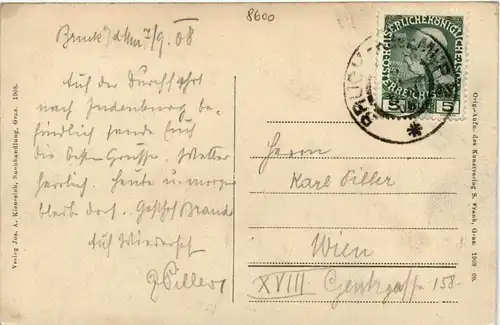 8600
Bruck a/d Mur 7/9. 08
Auf der Durchfahrt
nach Judenburg be-
findlich sende Euch
die besten Grüsse. Wetter
herrlich. Heute u. morgen
bleib dort. Gasthof Brand
Auf Wiederseh
Piller
Herrn
Karl Piller
Wien
XVIII 158.
5 5
BRUCK
Verlag Jos. A. Kienreich, Buchhandlung, Graz. 1908.
Orig.-Aufn. des Kunstverlag S. Frank, Graz. 1908